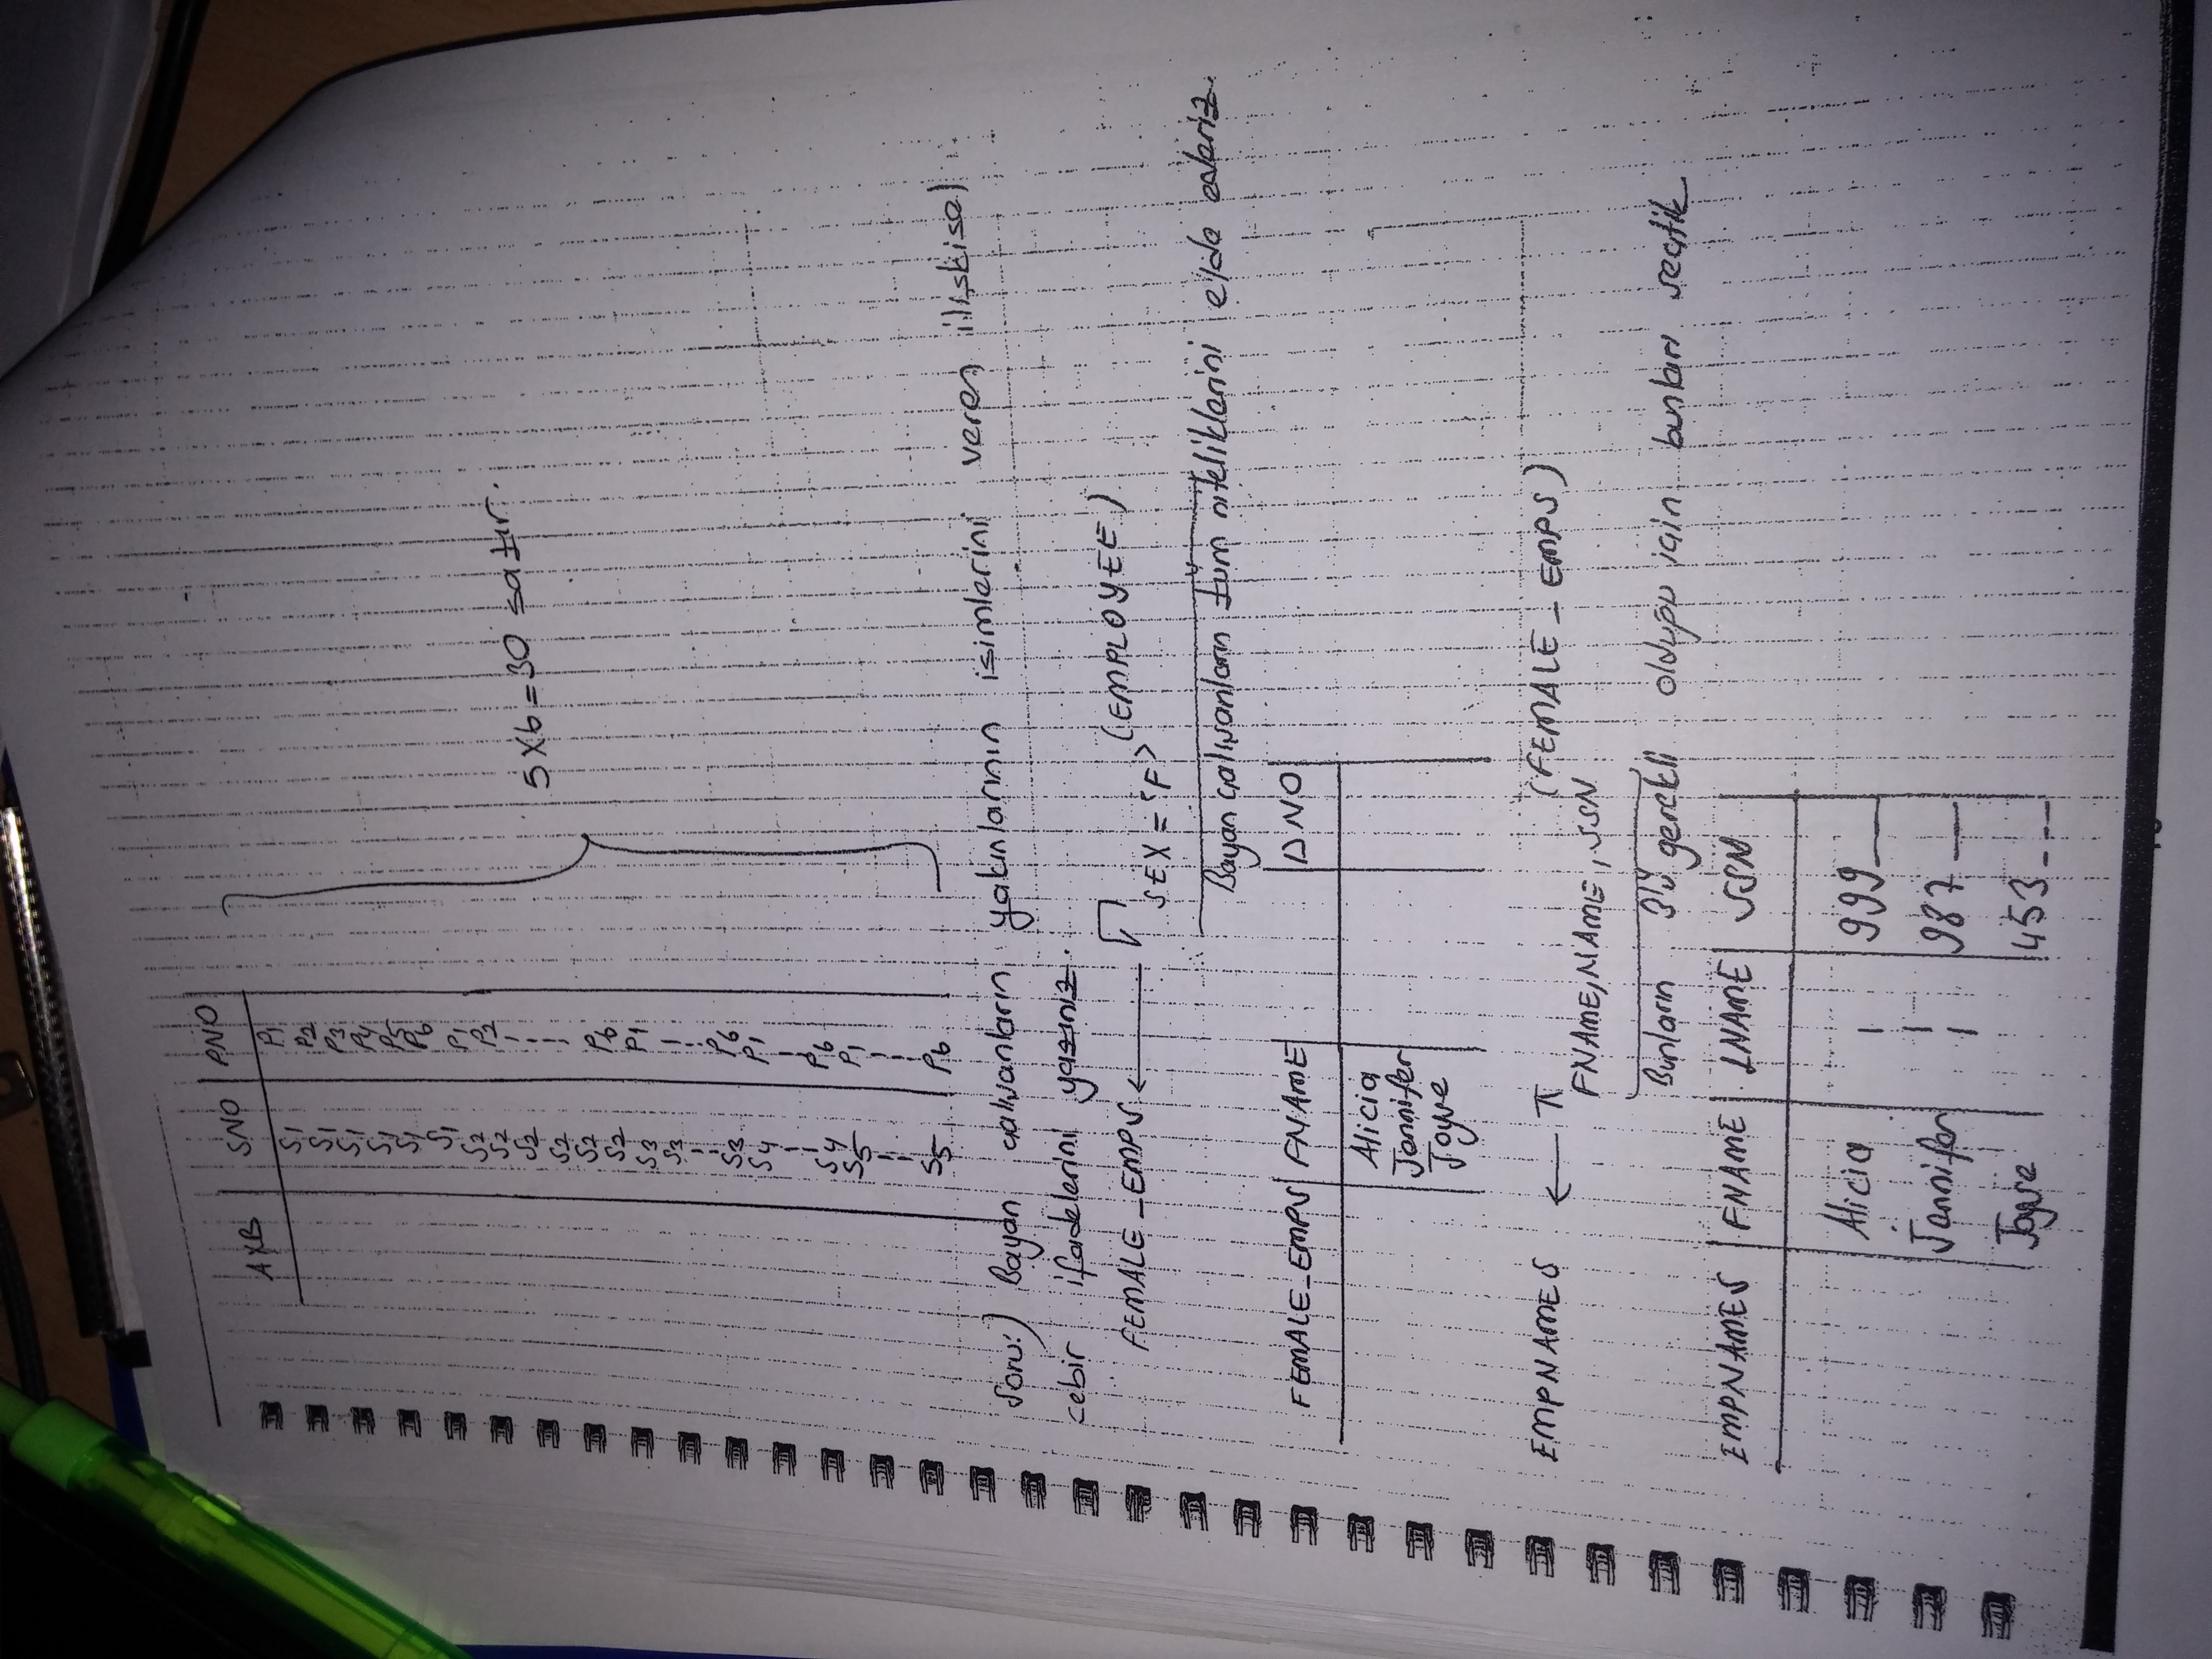 AXB SNO PNO
S1 P1
S1 P2
S1 P3
S1 P4
S1 P5
S1 P6
S2 P1
S2 P2
S2
S2
S2
S2 P6
S3 P1
S3
S3 P6
S4 P1
S4 P6
S5 P1
S5 P6
5X6=30 satır.
Soru:) Bayan çalışanların yakınlarının isimlerini veren ilişkisel
cebir ifadelerini yazınız.
FEMALE_EMPS ← σ SEX='F' (EMPLOYEE)
Bayan çalışanların tüm niteliklerini elde ederiz.
FEMALE_EMPS FNAME DNO
Alicia
Jannifer
Joyve
EMPNAMES ← π FNAME,NAME,SSN (FEMALE_EMPS)
Bunların 3'ü gerekli olduğu için bunları seçtik
EMPNAMES FNAME LNAME SSN
Alicia — 999 —
Jannifer — 987 —
Joyve — 453 ---